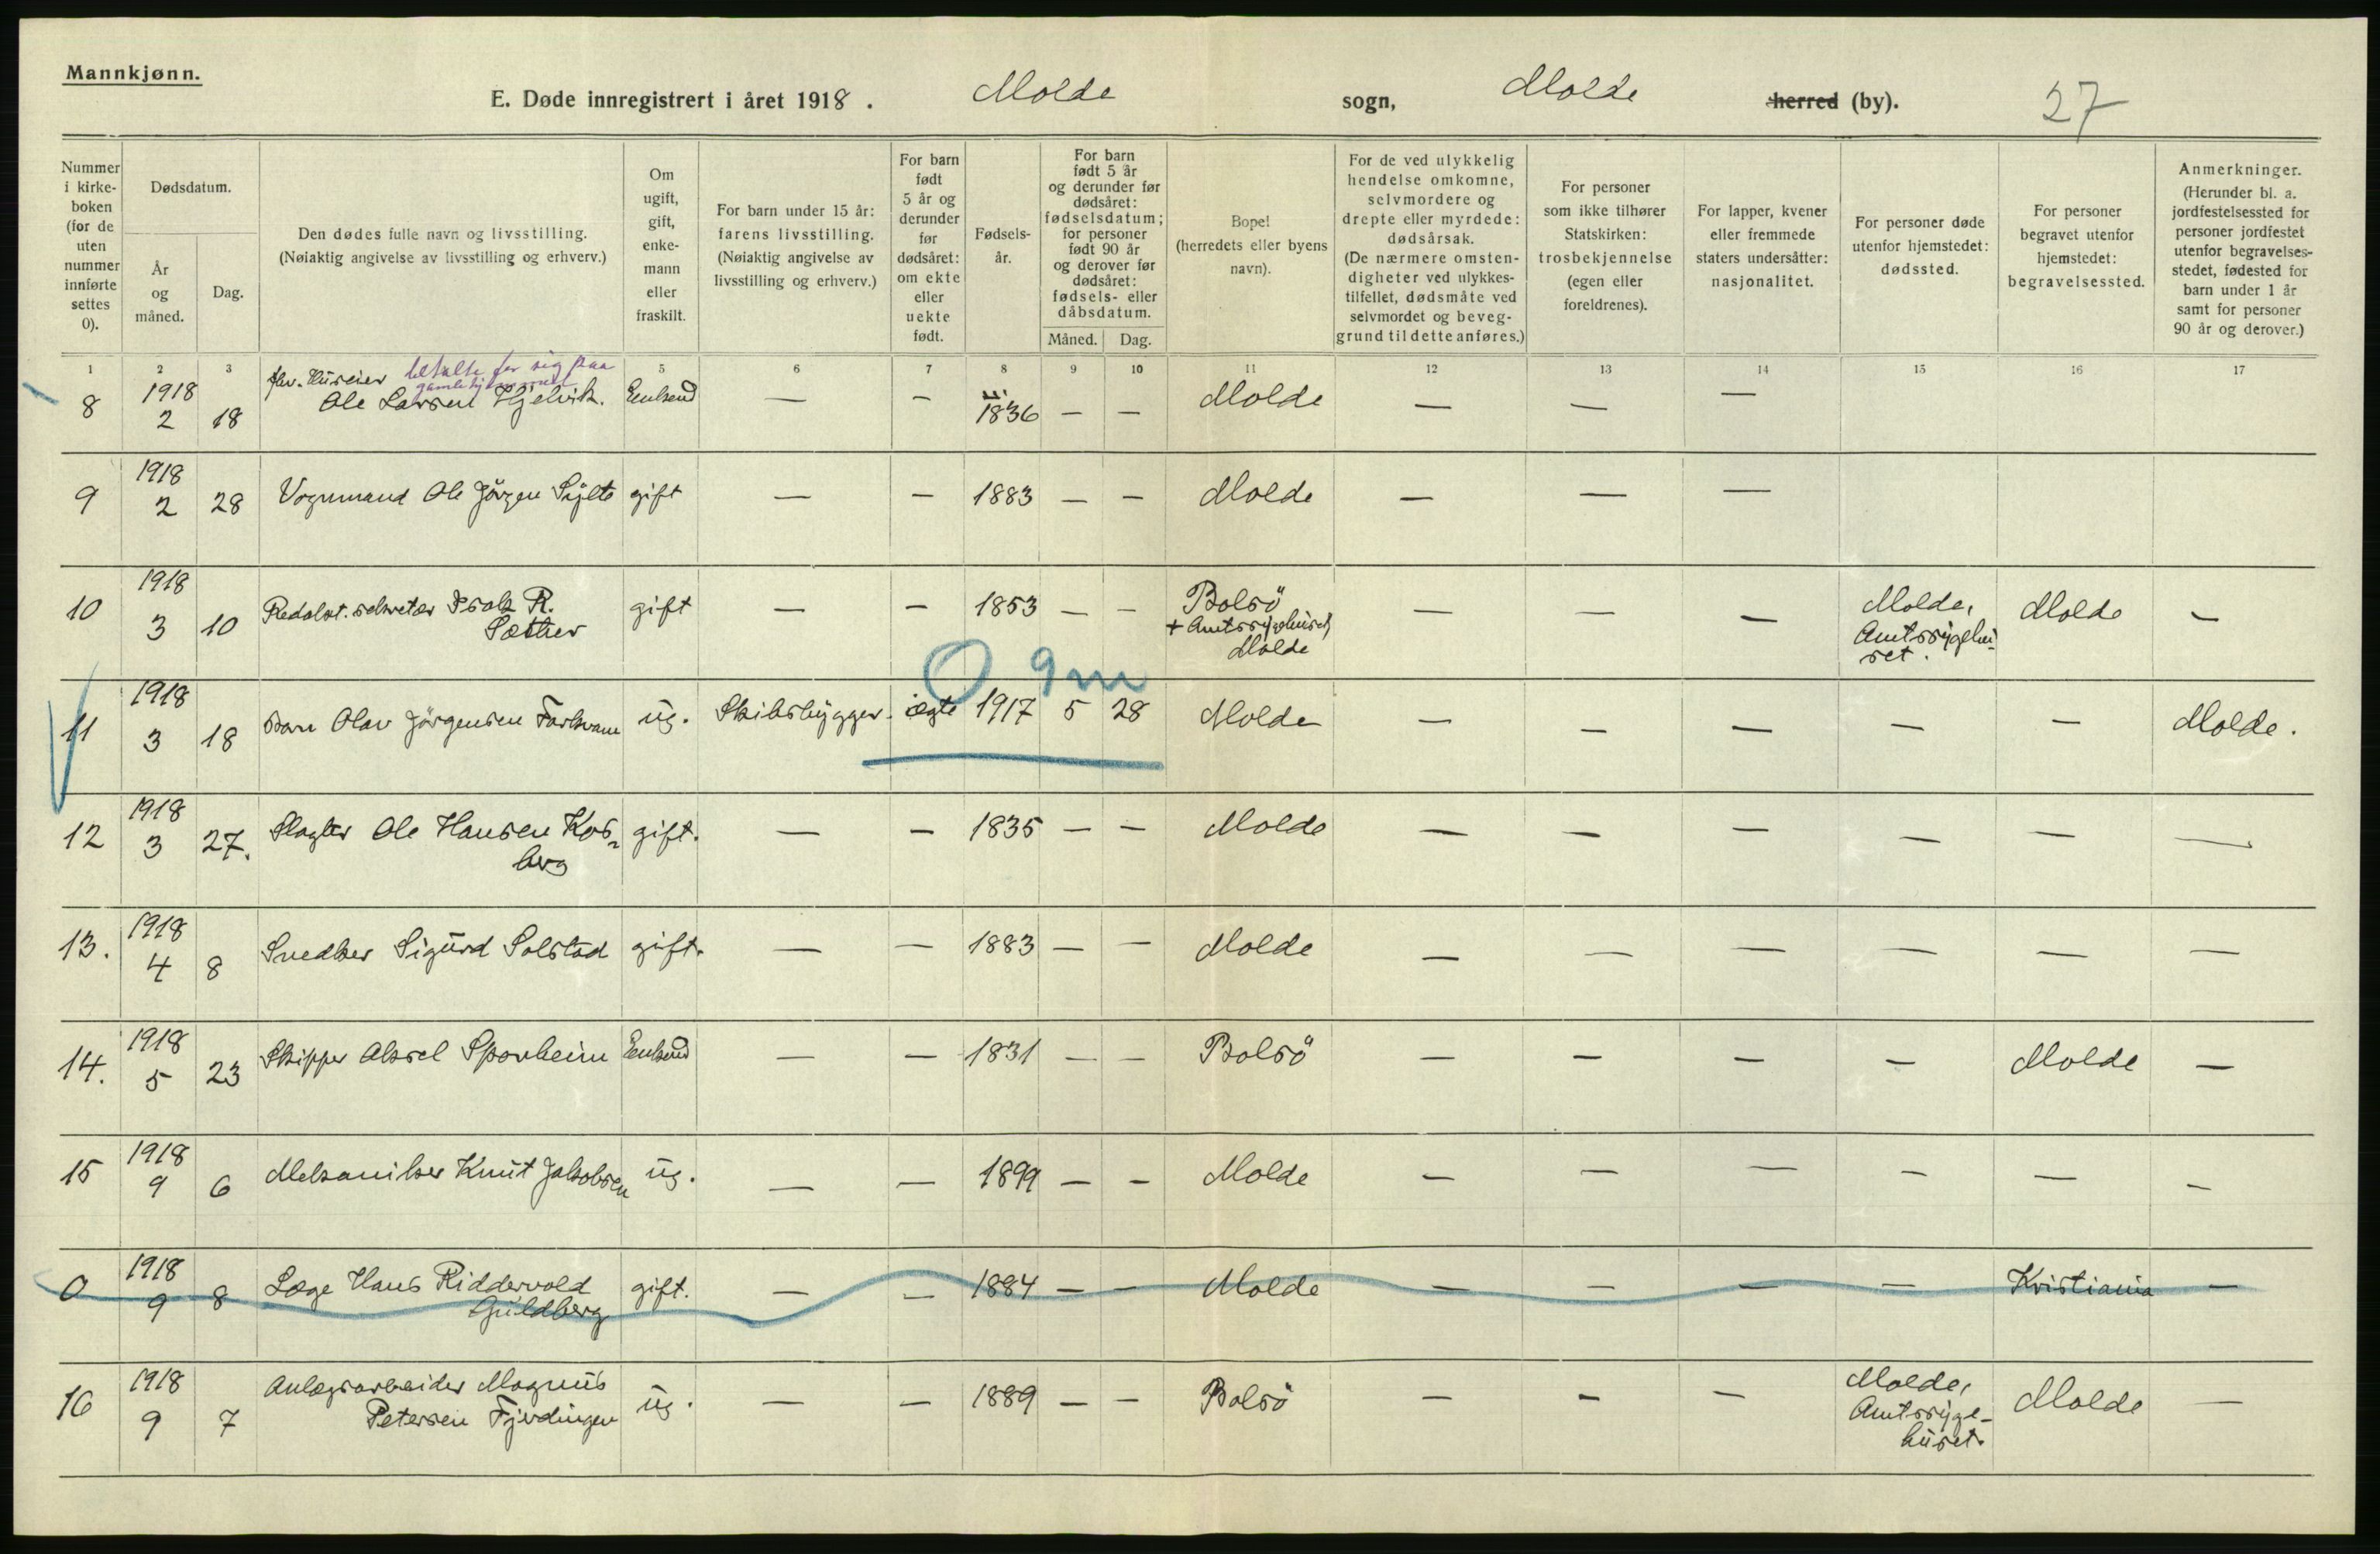 Mannkjønn.
E. Døde innregistrert i året 1918. Molde sogn, Molde herred (by). 27
Nummer i kirke-boken (for de uten nummer innførte settes 0).
Dødsdatum.
År og måned.
Dag.
Den dødes fulle navn og livsstilling.
(Nøiaktig angivelse av livsstilling og erhverv.)
Om ugift, gift, enke-mann eller fraskilt.
For barn under 15 år: farens livsstilling. (Nøiaktig angivelse av livsstilling og erhverv.)
For barn født 5 år og derunder før dødsåret: om ekte eller uekte født.
Fødsels-år.
For barn født 5 år og derunder før dødsåret: fødselsdatum; for personer født 90 år og derover før dødsåret: fødsels- eller dåbsdatum.
Måned. Dag.
Bopel (herredets eller byens navn).
For de ved ulykkelig hendelse omkomne, selvmordere og drepte eller myrdede: dødsårsak. (De nærmere omsten-digheter ved ulykkes-tilfellet, dødsmåte ved selvmordet og beveg-grund til dette anføres.)
For personer som ikke tilhører Statskirken: trosbekjennelse (egen eller foreldrenes).
For lapper, kvener eller fremmede staters undersåtter: nasjonalitet.
For personer døde utenfor hjemstedet: dødssted.
For personer begravet utenfor hjemstedet: begravelsessted.
Anmerkninger. (Herunder bl. a. jordfestelsessted for personer jordfestet utenfor begravelses-stedet, fødested for barn under 1 år samt for personer 90 år og derover.)
1 2 3 5 6 7 8 9 10 11 12 13 14 15 16 17
betalte for sig paa
gamlehjemmet
8 1918 2 18 fhv. Huseier Ole Larsen Hjelvik. Enkemd — — 1836 — — Molde — — —
9 1918 2 28 Vognmand Ole Jörgen Sylte gift — — 1883 — — Molde — — —
10 1918 3 10 Redakt. sekretær Isak R. Sæther gift — — 1853 — — Bolsö + Amtssygehuset, Molde — — — Molde, Amtssygehu-set. Molde —
0 9m
11 1918 3 18 Barn Olav Jörgensen Farkvam ug. Skibsbygger. ægte 1917 5 28 Molde — — — — — Molde.
12 1918 3 27. Slagter Ole Hansen Kos-berg gift. — — 1835 — — Molde — — — — — —
13. 1918 4 8 Snedker Sigurd Solstad gift. — — 1883 — — Molde — — — — — —
14. 1918 5 23 Skipper Aksel Sponheim Enkemd — — 1831 — — Bolsö — — — — Molde —
15 1918 9 6 Mekaniker Knut Jakobsen ug. — — 1899 — — Molde — — — — — —
0 1918 9 8 Læge Hans Riddervold Guldberg gift. — — 1884 — — Molde — — — — Kristiania —
16 1918 9 7 Anlægsarbeider Magnus Petersen Fjerdingen ug. — — 1889 — — Bolsö — — — Molde, Amtssyge-huset. Molde —